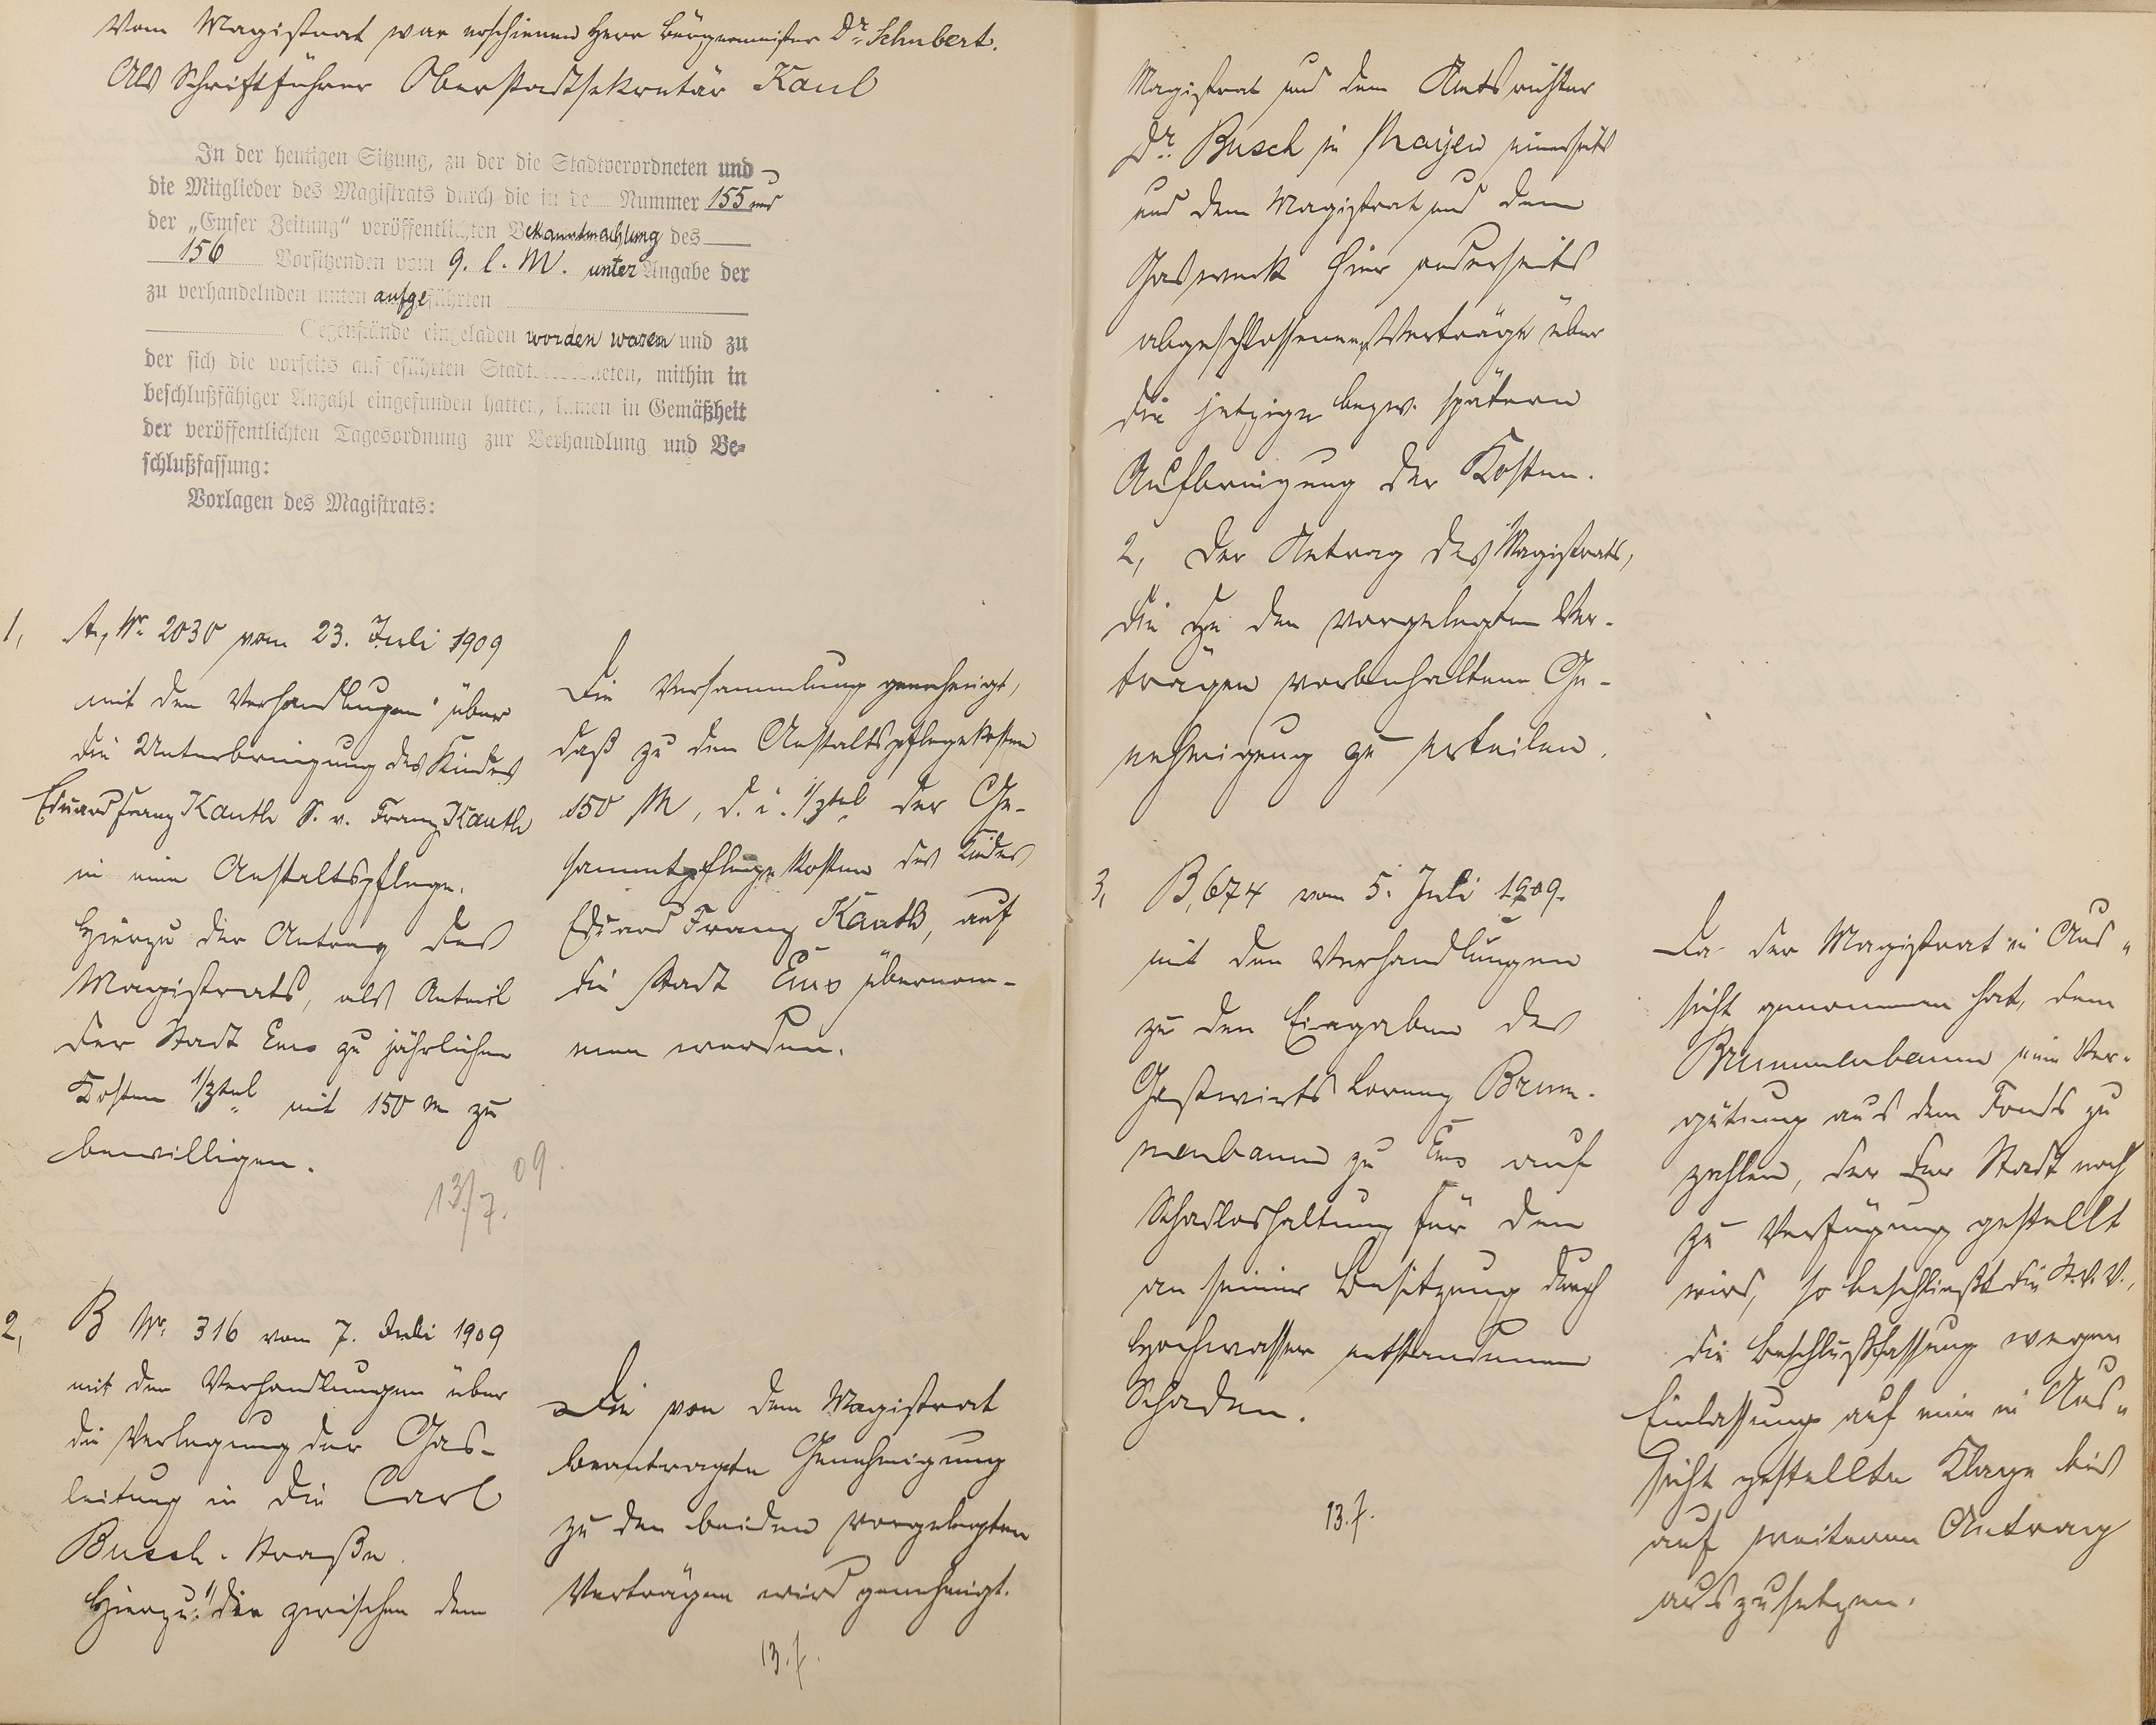 Vom Magistrat war erschienen Herr Bürgermeister Dr. Schubert.
Als Schriftführer Oberstadtsekretär Kaul
In der heutigen Sitzung, zu der die Stadtverordneten und
die Mitglieder des Magistrats durch die in de Nummer 155 und
der „Emser Zeitung" veröffentlichten Bekanntmachung des
156 Vorsitzenden vom 9. l. M. unter Angabe der
zu verhandelnden unten aufgeführten
Gegenstände eingeladen worden waren und zu
der sich die vorseits aufgeführten Stadtverordneten, mithin in
beschlußfähiger Anzahl eingefunden hatten, kamen in Gemäßheit
der veröffentlichten Tagesordnung zur Verhandlung und Be-
schlußfassung:
Vorlagen des Magistrats:
1, A, Nr. 2030 vom 23. Juli 1909
mit den Verhandlungen über
die Unterbringung des Kindes
Eduard Franz Kauth S. v. Franz Kauth
in eine Anstaltspflege.
Hierzu der Antrag des
Magistrats, als Anteil
der Stadt Ems zu jährlichen
Kosten 1/3tel mit 150 M zu
bewilligen.
13/7. 09.
Die Versammlung genehmigt,
daß zu den Anstaltspflegekosten
150 M, d. i. 1/3tel der Ge-
sammtpflegekosten des Kindes
Eduard Franz Kauth, auf
die Stadt Ems übernom-
men werden.
2, B Nr. 316 vom 7. Juli 1909
mit den Verhandlungen über
die Verlegung der Gas-
leitung in die Carl
Busch-Straße.
Hierzu: 1/ die zwischen dem
Die von dem Magistrat
beantragte Genehmigung
zu den beiden vorgelegten
Verträgen wird genehmigt.
13.7.
Magistrat und dem Amtsrichter
Dr. Busch in Mayen einerseits
und dem Magistrat und dem
Gaswerk hier anderseits
abgeschlossenen Verträge über
die jetzige bezw. spätern
Aufbringung der Kosten.
2, Der Antrag des Magistrats,
die zu den vorgelegten Ver-
trägen vorbehaltene Ge-
nehmigung zu erteilen.
3, B, 674 vom 5. Juli 1909.
mit den Verhandlungen
zu den Eingaben des
Gastwirts Lorenz Brum-
menbaum zu Ems auf
Schadloshaltung für den
an seiner Besitzung durch
Hochwasser entstandenen
Schaden.
13.7.
Da der Magistrat in Aus-
sicht genommen hat, dem
Brummenbaum eine Ver-
gütung aus dem Fonds zu
zahlen, der der Stadt noch
zu Verfügung gestellt
wird, so beschließt die St.V.V.,
die Beschlußfassung wegen
Einlassung auf eine in Aus-
sicht gestellte Klage bis
auf weiteren Antrag
auszusetzen.